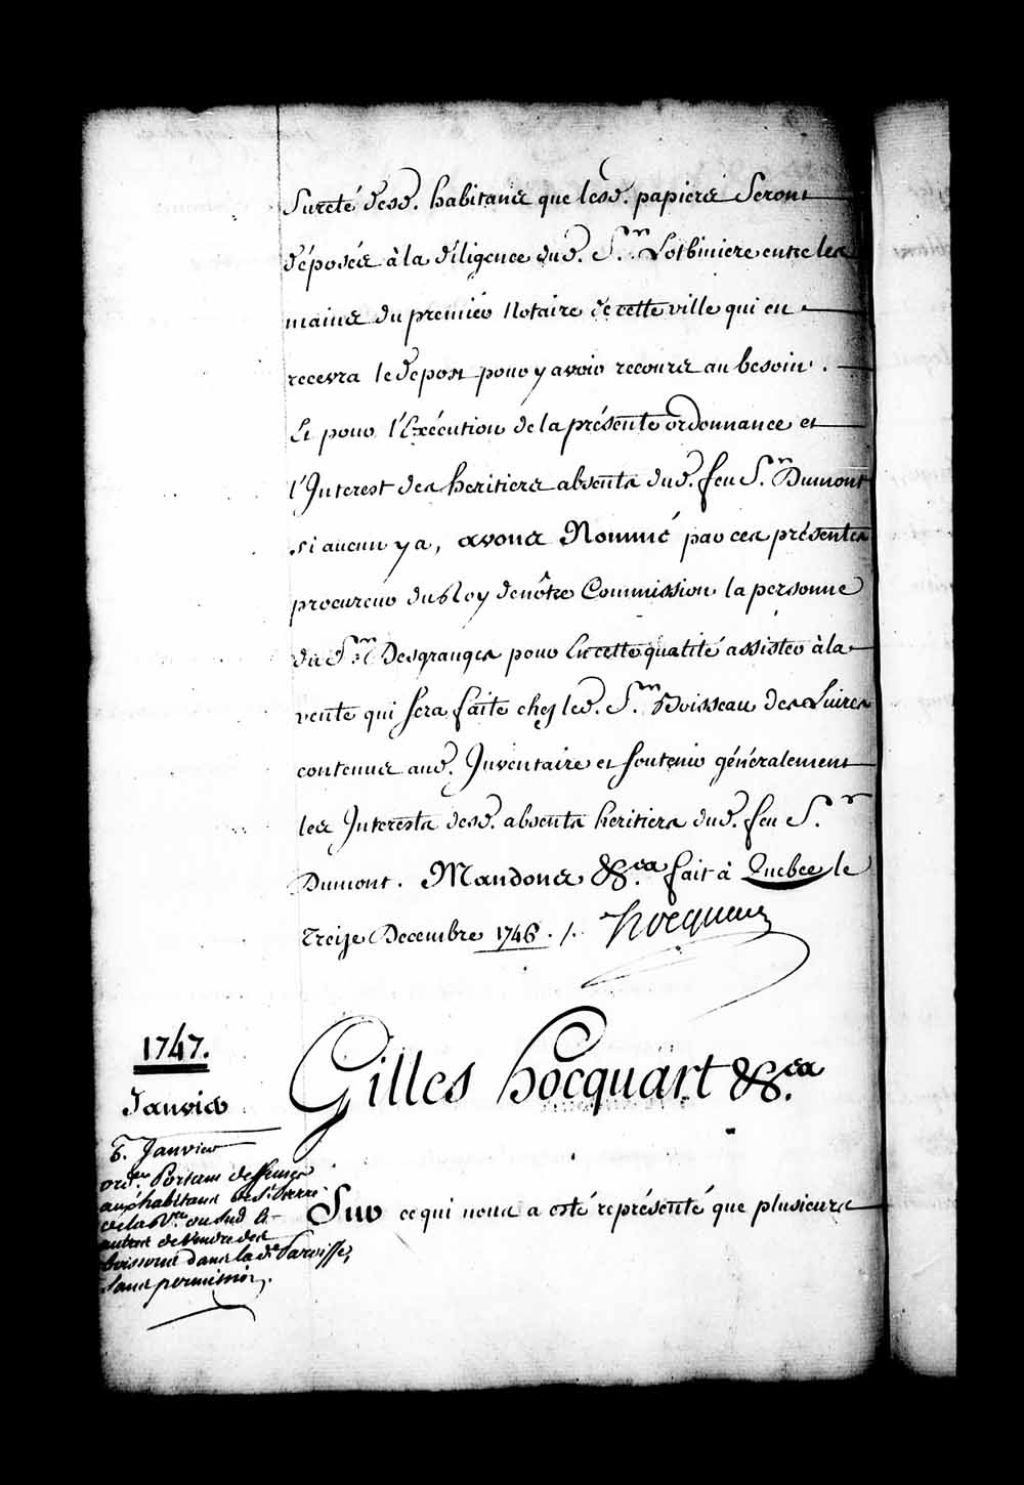 Sureté desd. habitans que lesd. papiers Seront
déposés à la diligence dud. S.r Lotbiniere entre les
mains du premier Notaire de cette ville qui en
recevra le depost pour y avoir recours au besoin.
Et pour l'Exécution de la présente ordonnance et
l'Interest des heritiers absents dud. feu S.r Dumont
si aucun y a, avons Nommé par ces présentes
procureur du Roy de nôtre Commission la personne
du S.r Desgranges pour En cette qualité assister à la
vente qui sera faite chez led. S.r Boisseau des Livres
contenus aud. Inventaire et soutenir généralement
les Interests desd. absents heritiers dud. feu S.r
Dumont. Mandons &c.a fait à Quebec le
Treize Decembre 1746. /. Hocquart
1747.
Janvier
Gilles hocquart &c.a
6. Janvier
ord.ce Portant deffenses
aux habitans de S.t Pierre
de la R.re du Sud &
autres de Vendre des
boissons dans la d.e Paroisse,
sans permission,.
Sur ce qui nous a esté représenté que plusieurs